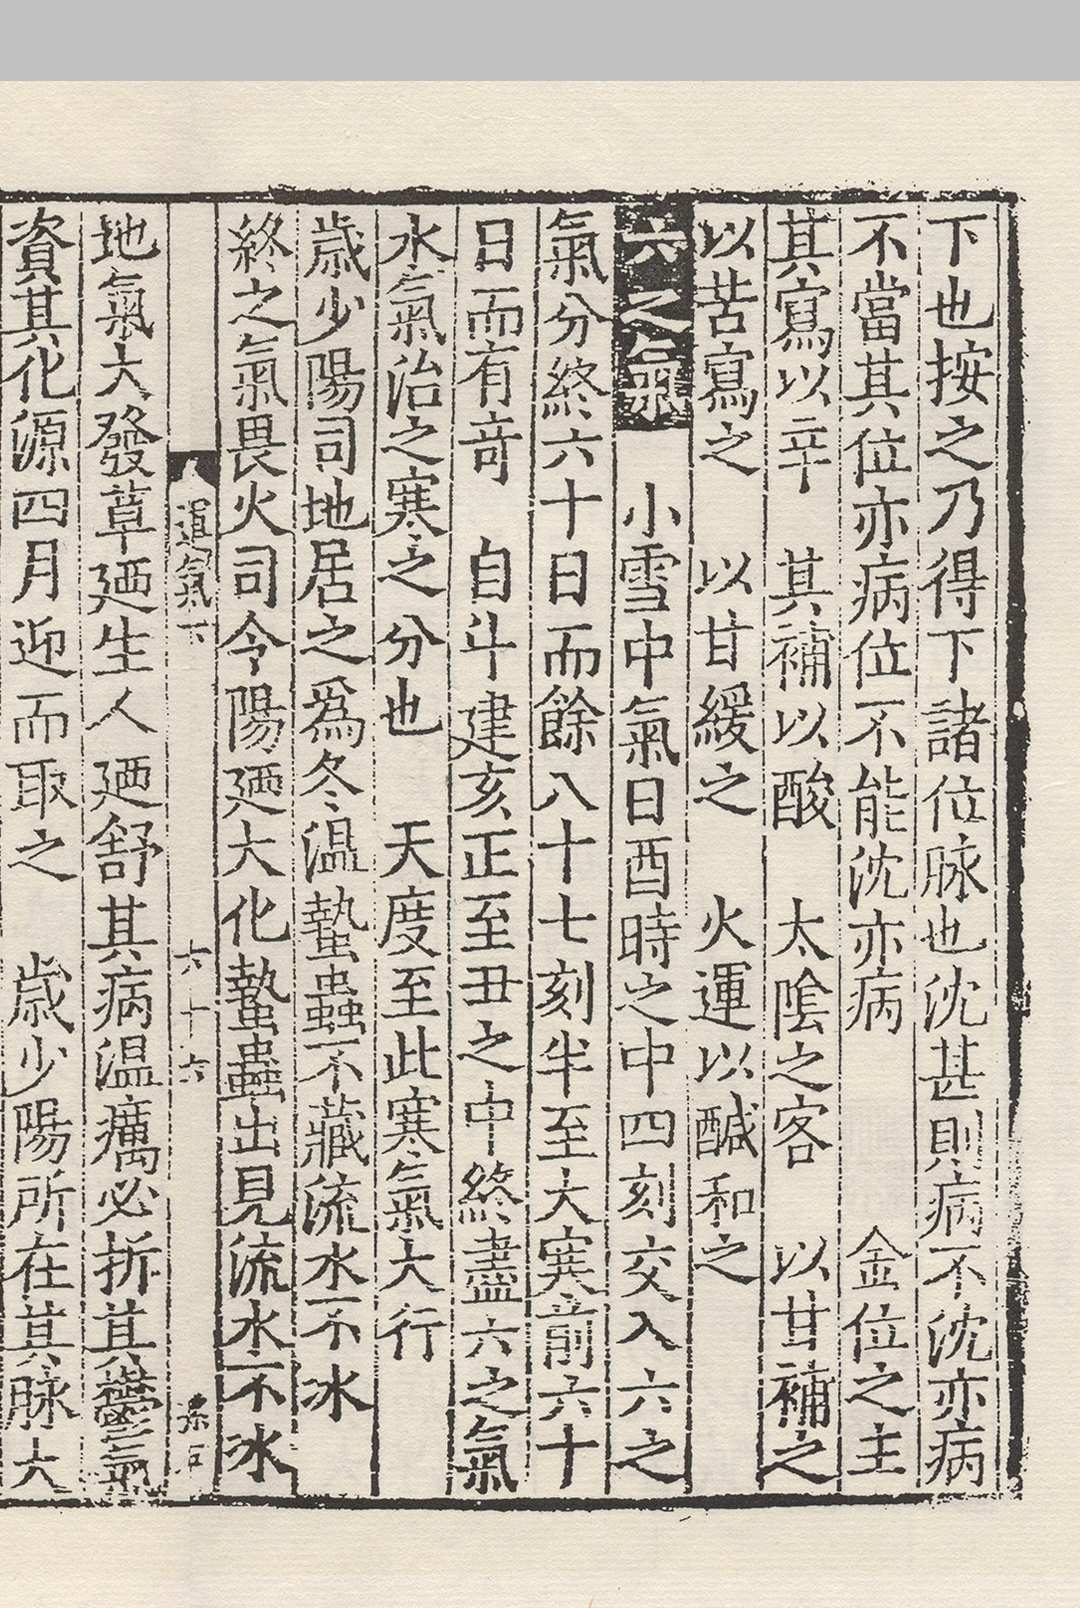 下也按之乃得下諸位脉也沈甚則病不沈亦病
不當其位亦病位不能沈亦病　金位之主
其寫以辛　其補以酸　太陰之客　以甘補之
以苦寫之　以甘緩之　火運以鹹和之
六之氣　小雪中氣日酉時之中四刻交入六之
氣分終六十日而餘八十七刻半至大寒前六十
日而有竒　自斗建亥正至丑之中終盡六之氣
水氣治之寒之分也　天度至此寒氣大行
歲少陽司地居之爲冬温蟄蟲不藏流水不冰
終之氣畏火司令陽廼大化蟄蟲出見流水不冰
運氣下　六十六
地氣大發草廼生人廼舒其病温癘必折其鬱氣
資其化源四月迎而取之　歲少陽所在其脉大